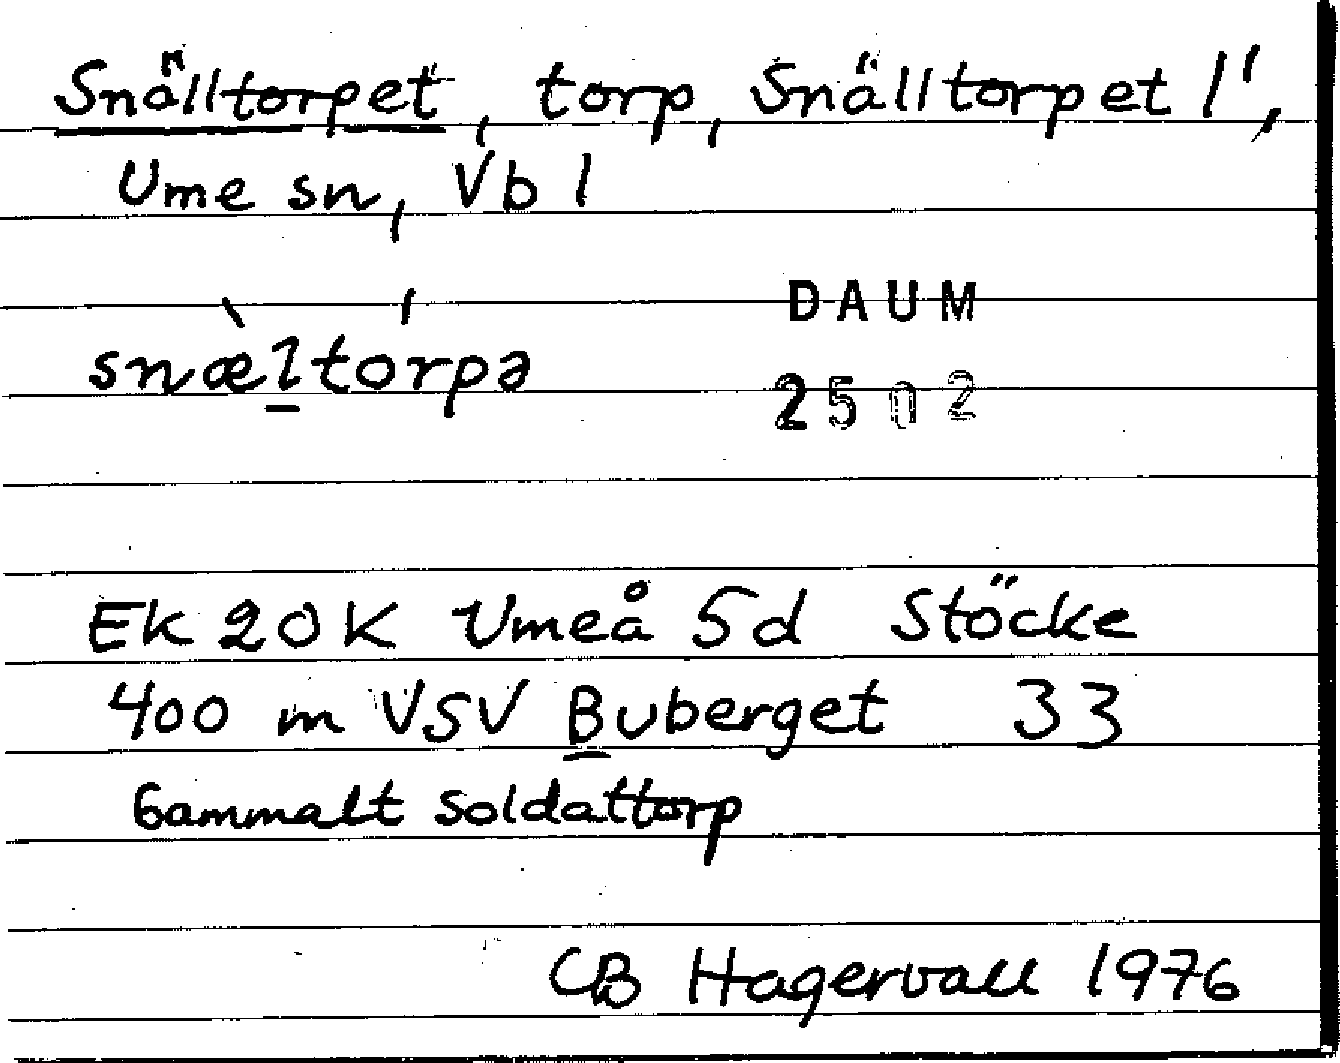 Snälltorpet, torp, Snälltorpet 1¹,
Ume sn, Vb l
DAUM
snæltorpə
2502
EK 20K Umeå 5d Stöcke
400 m VSV Buberget 33
Gammalt soldattorp
CB Hagervall 1976